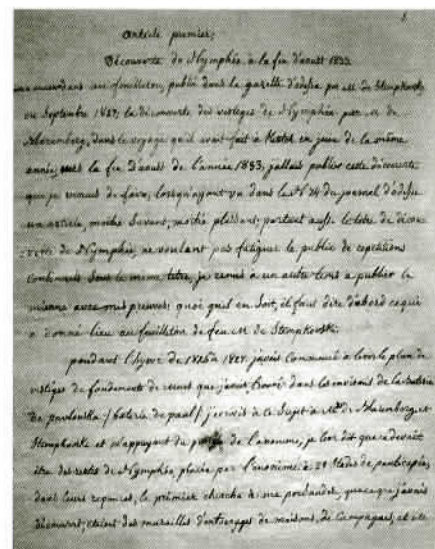 article premier;
Découverte de Nymphée à la fin d'aoust 1833
au feuilleton, publié dans la gazette d'odessa par mr de Stempkovsky
en Septembre 1827; la découverte des vestiges de Nymphée par mr de
Blaremberg, dans le voyage qu'il avoit fait à Kertch en juin de la même
année; vers la fin d'aoust de l'année 1833; j'allais publier cette découverte
que je venais de faire; lorsqu'ayant vu dans le N° 74 du journal d'odessa
un article, moitié Savant, moitié plaisant; portant aussi le titre de décou-
-verte de Nymphée; ne voulant pas fatiguer le public de repetitions
sous le même titre, je remis à un autre tems a publier la
mienne avec mes preuves; quoi qu'il en Soit, il faut dire d'abord ce qui
a donné lieu au feuilleton de feu mr de Stempkovski:
pendant l'hyver de 1826 à 1827. j'avois Commencé a lever le plan de
vestiges de fondements de murs que j'avois trouvé dans les environs de la baterie
de pavlovska / baterie de paul / j'ecrivis à ce Sujet à Mrs de Blaremberg et
Stempkovski et m'appuyant du periple de l'anonime, je leur dit que ce devait
être des restes de Nymphée, placée par l'anonime à stades de panticapée,
dans leurs reponses, le premier chercha à me persuader, que ce que j'avais
découvert; etaient des murailles d'entourages de maisons, de Campagnes, et